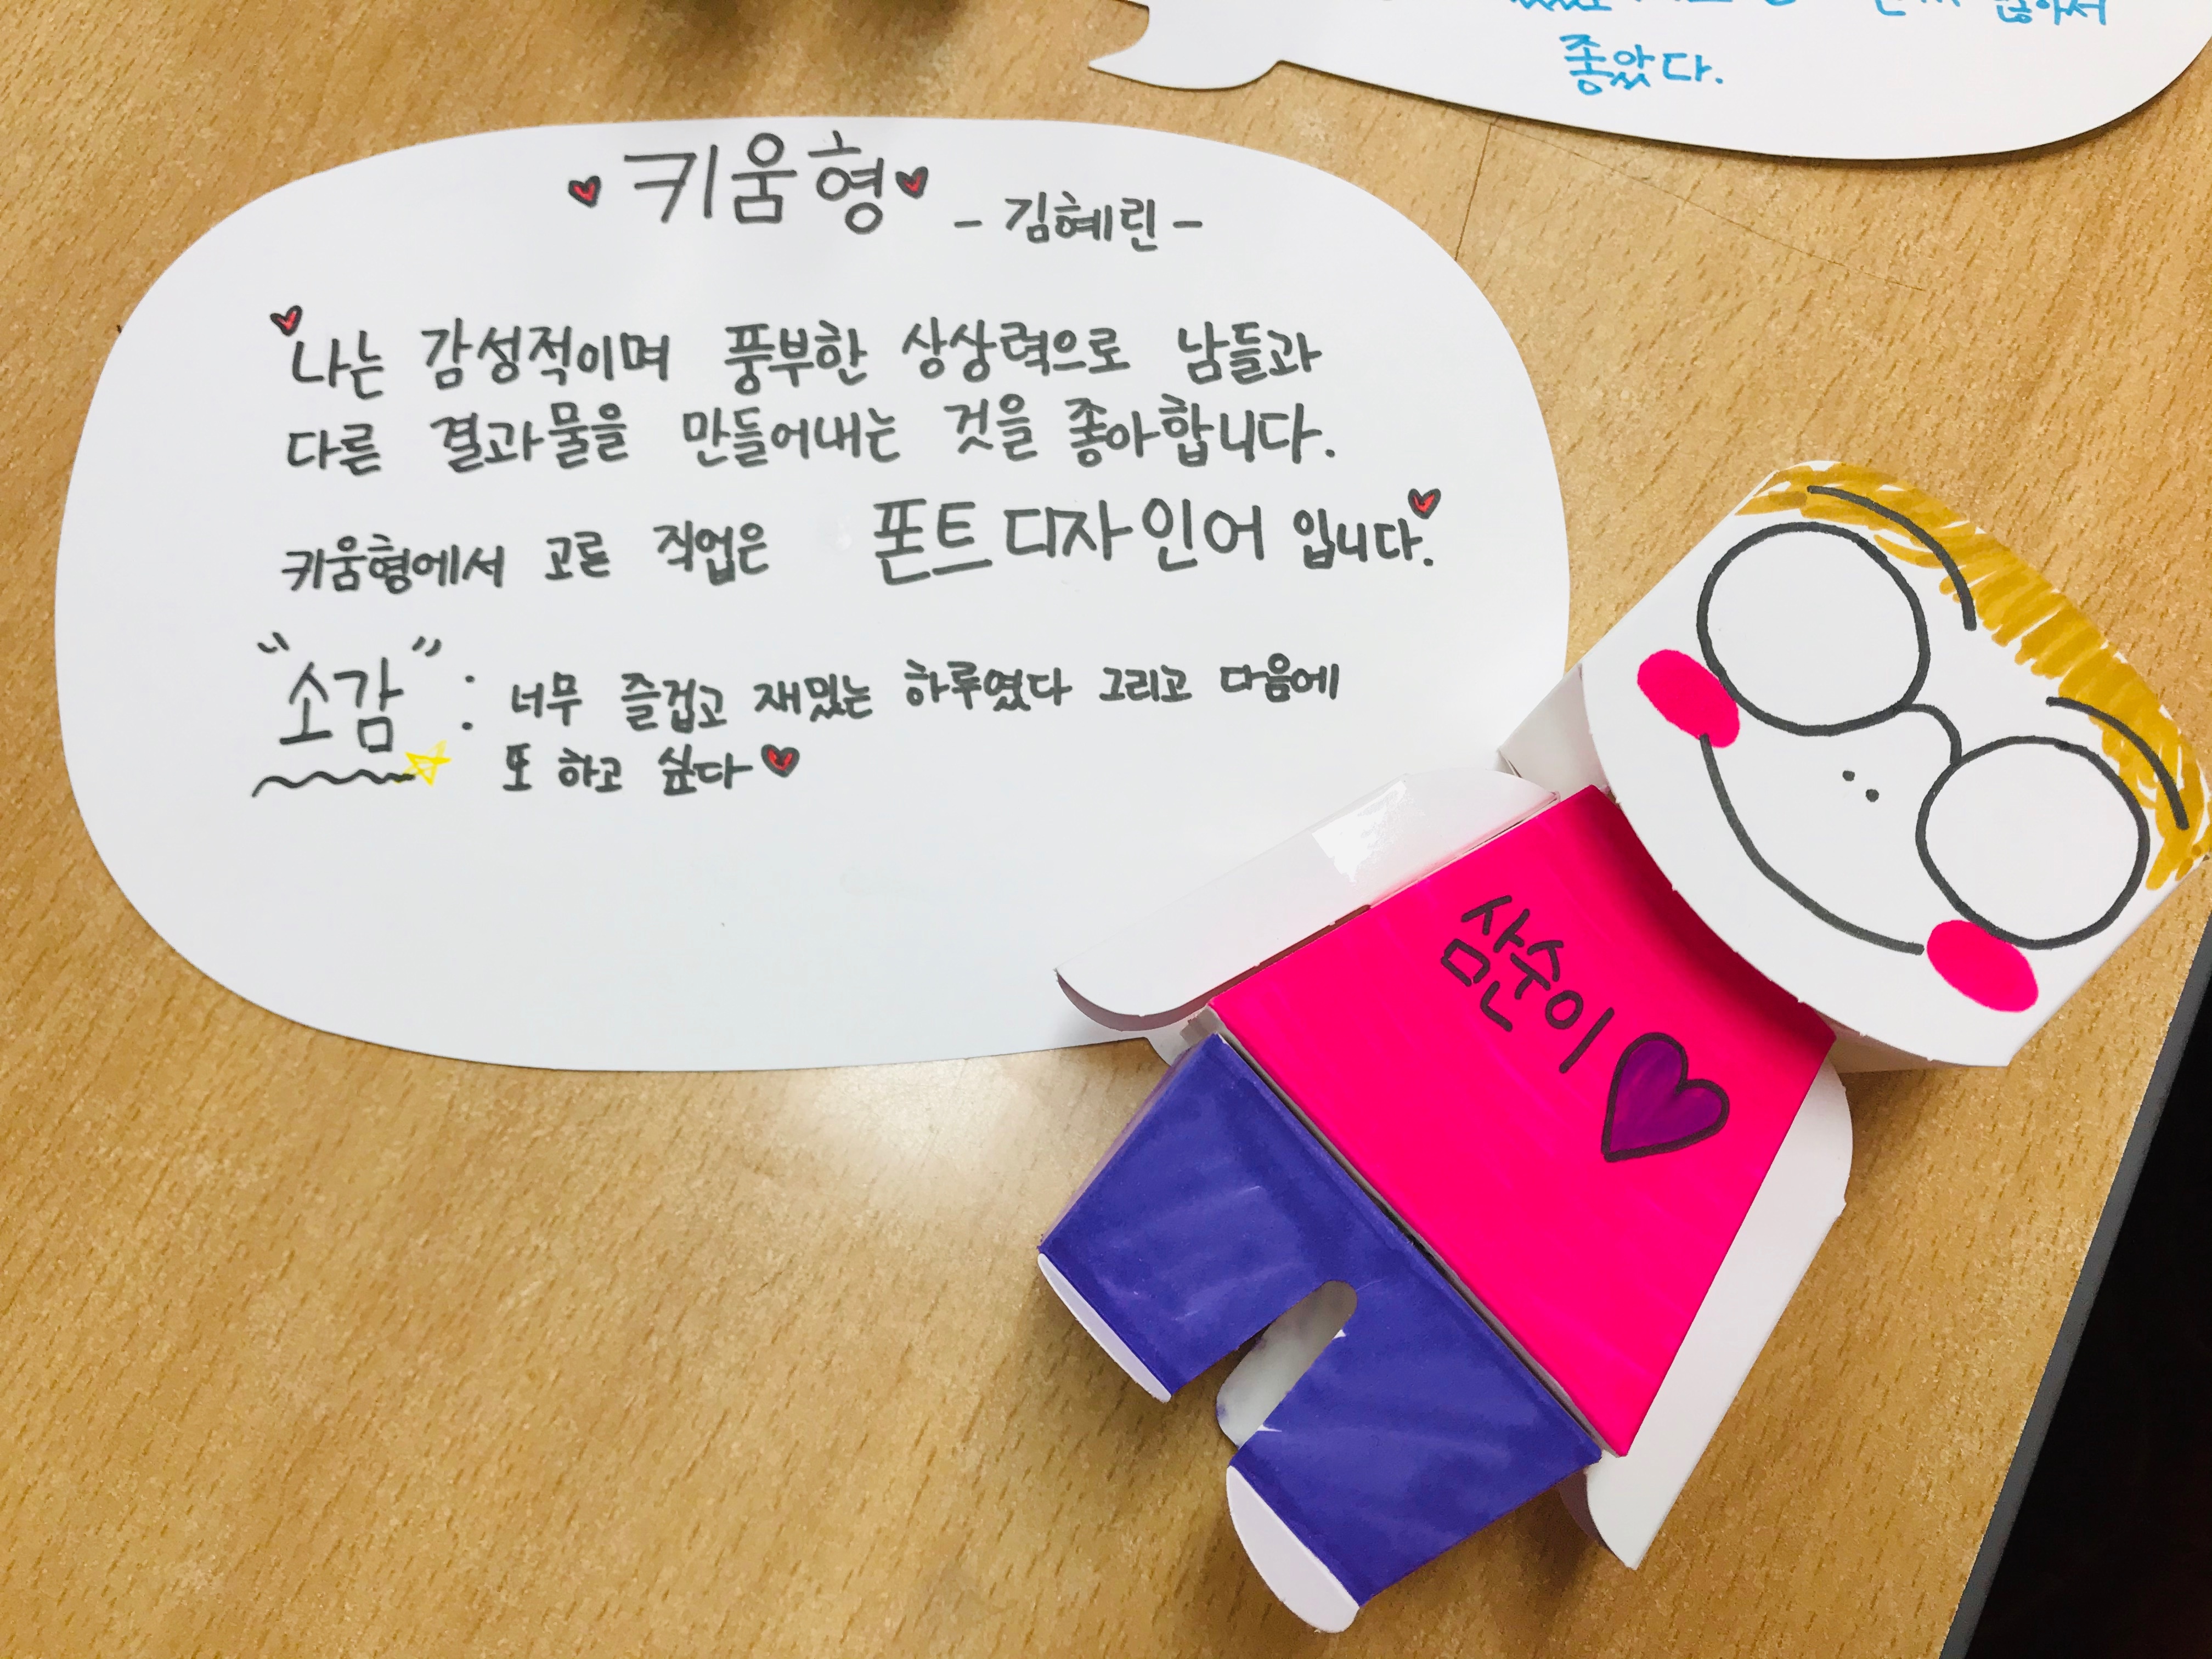 않아서
좋았다.
♥키움형♥ - 김혜린 -
나는 감성적이며 풍부한 상상력으로 남들과
다른 결과물을 만들어내는 것을 좋아합니다.
키움형에서 고른 직업은 폰트디자인어 입니다.
"소감" : 너무 즐겁고 재밌는 하루였다 그리고 다음에
또 하고 싶다♥
삼순이♥